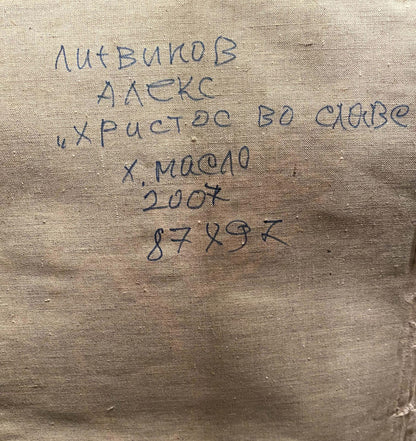 ЛИТВИНОВ
АЛЕКС
„ХРИСТОС ВО СЛАВЕ
Х. МАСЛО
2007
87Х97